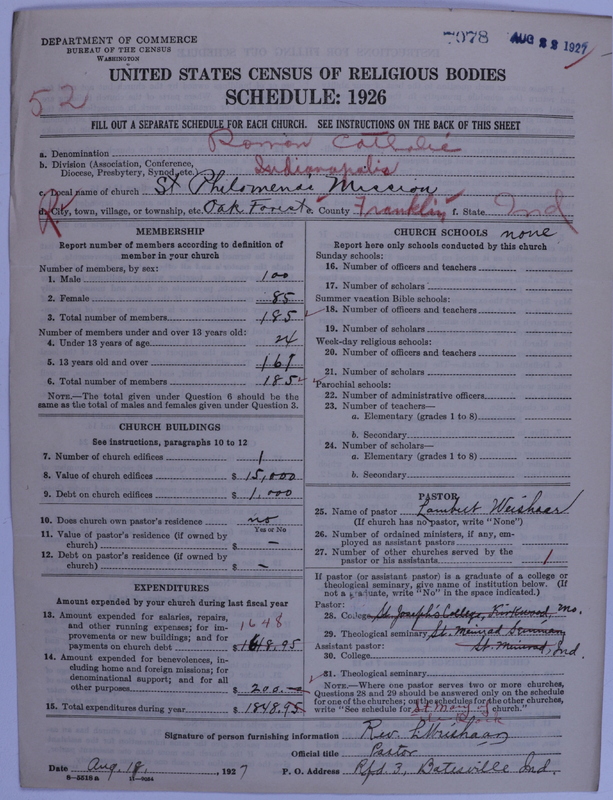 7078 AUG 22 1927
DEPARTMENT OF COMMERCE
BUREAU OF THE CENSUS
WASHINGTON
UNITED STATES CENSUS OF RELIGIOUS BODIES
52
SCHEDULE: 1926
FILL OUT A SEPARATE SCHEDULE FOR EACH CHURCH. SEE INSTRUCTIONS ON THE BACK OF THIS SHEET
a. Denomination Roman Catholic
b. Division (Association, Conference, Diocese, Presbytery, Synod, etc.) Indianapolis
c. Local name of church St Philomenas Mission
d. City, town, village, or township, etc. Oak Forest e. County Franklin f. State Ind
MEMBERSHIP
Report number of members according to definition of
member in your church
Number of members, by sex:
1. Male 100
2. Female 85
3. Total number of members 185
Number of members under and over 13 years old:
4. Under 13 years of age 24
5. 13 years old and over 161
6. Total number of members 185
NOTE.—The total given under Question 6 should be the
same as the total of males and females given under Question 3.
CHURCH BUILDINGS
See instructions, paragraphs 10 to 12
7. Number of church edifices 1
8. Value of church edifices $ 15,000
9. Debt on church edifices $ 1,000
10. Does church own pastor's residence no
Yes or No
11. Value of pastor's residence (if owned by
church) $ –
12. Debt on pastor's residence (if owned by
church) $ –
EXPENDITURES
Amount expended by your church during last fiscal year
13. Amount expended for salaries, repairs,
and other running expenses; for im- 1648
provements or new buildings; and for
payments on church debt $ 1648.95
14. Amount expended for benevolences, in-
cluding home and foreign missions; for
denominational support; and for all
other purposes $ 200.—
15. Total expenditures during year $ 1848.95
CHURCH SCHOOLS none
Report here only schools conducted by this church
Sunday schools:
16. Number of officers and teachers
17. Number of scholars
Summer vacation Bible schools:
18. Number of officers and teachers
19. Number of scholars
Week-day religious schools:
20. Number of officers and teachers
21. Number of scholars
Parochial schools:
22. Number of administrative officers
23. Number of teachers—
a. Elementary (grades 1 to 8)
b. Secondary
24. Number of scholars—
a. Elementary (grades 1 to 8)
b. Secondary
PASTOR
25. Name of pastor Lambert Weishaar
(If church has no pastor, write "None")
26. Number of ordained ministers, if any, em-
ployed as assistant pastors
27. Number of other churches served by the
pastor or his assistants 1
If pastor (or assistant pastor) is a graduate of a college or
theological seminary, give name of institution below. (If
not a graduate, write "No" in the space indicated.)
Pastor:
28. College St Joseph's College, Kirkwood, Mo.
29. Theological seminary St. Meinrad Seminary
Assistant pastor: St. Meinrad, Ind.
30. College
31. Theological seminary
NOTE.—Where one pastor serves two or more churches,
Questions 28 and 29 should be answered only on the schedule
for one of the churches; on the schedules for the other churches,
write "See schedule for St Mary of the Rock church."
Signature of person furnishing information Rev. L Weishaar
Official title Pastor
Date Aug. 18, 1927 P. O. Address Rfd. 3, Batesville Ind.
8—5518a 11—9084